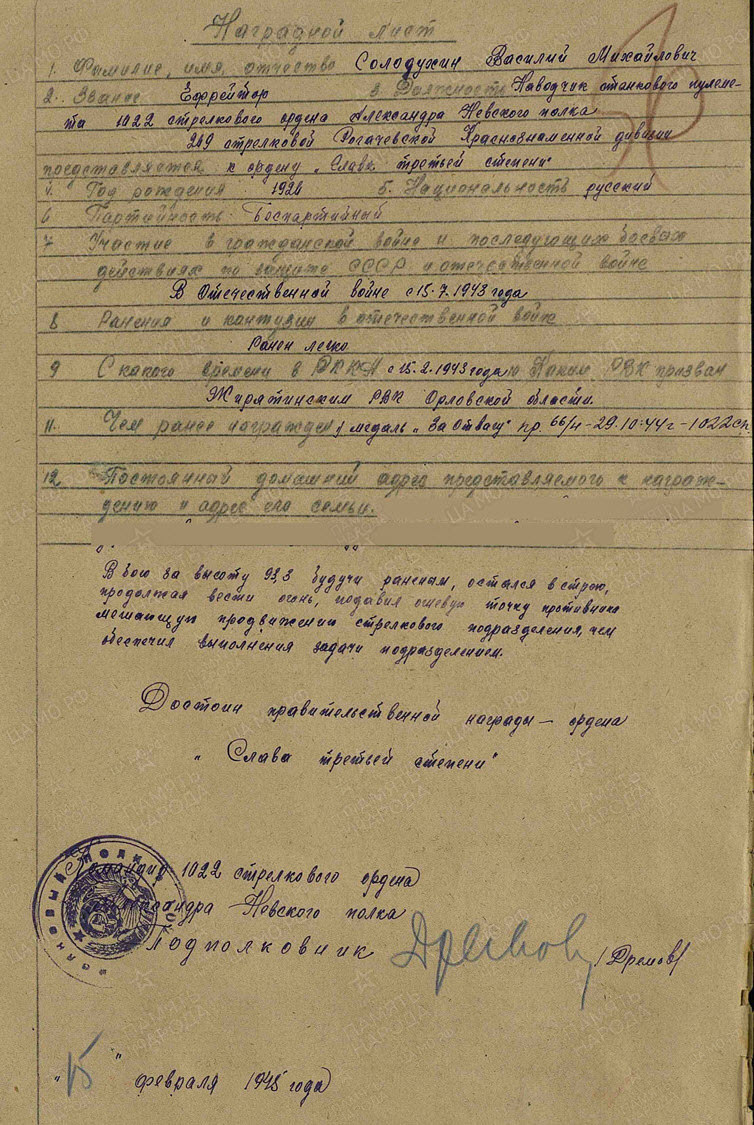 Наградной лист
1. Фамилие, имя, отчество Солодухин Василий Михайлович
2. Звание Ефрейтор 3. Должность Наводчик станкового пулеме-
та 1022 стрелкового ордена Александра Невского полка
269 стрелковой Рогачевской Краснознаменной дивизии
представляется к ордену „Слава третьей степени"
4. Год рождения 1924 5. Национальность русский
6 Партийность Беспартийный
7 Участие в гражданской войне и последующих боевых
действиях по защите СССР и отечественной войне
В Отечественной войне с 15.7.1943 года
8 Ранения и контузии в отечественной войне
Ранен легко
9 С какого времени в РККА с 15.2.1943 года 10 Каким РВК призван
Жирятинским РВК Орловской области.
11. Чем ранее награжден медаль „За Отвагу" пр. 66/н - 29.10.44 г - 1022 сп
12 Постоянный домашний адрес представляемого к награж-
дению и адрес его семьи.
В бою за высоту 93,3 будучи раненым, остался в строю,
продолжая вести огонь, подавил огневую точку противника
мешающую продвижению стрелкового подразделения, чем
обеспечил выполнения задачи подразделением.
Достоин правительственной награды - ордена
„Слава третьей степени"
Командир 1022 стрелкового ордена
Александра Невского полка
Подполковник /Дремов/
„15" февраля 1945 года